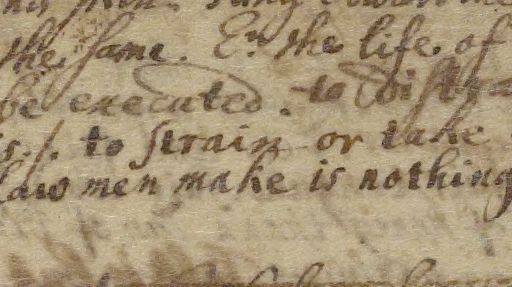 the same. Er the life of
be executed. to Distra
is /. to strain or take
law men make is nothing